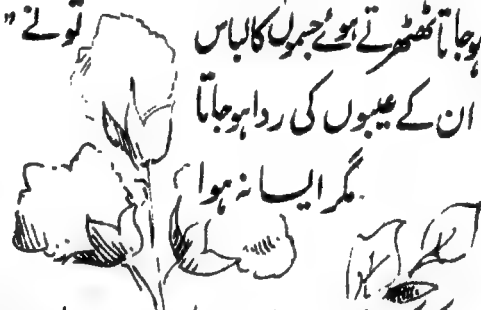 ہو جاتا ٹھٹھرتے ہوئے جسموں کا لباس
ان کے عیبوں کی ردا ہو جاتا
مگر ایسا نہ ہوا
" تو نے